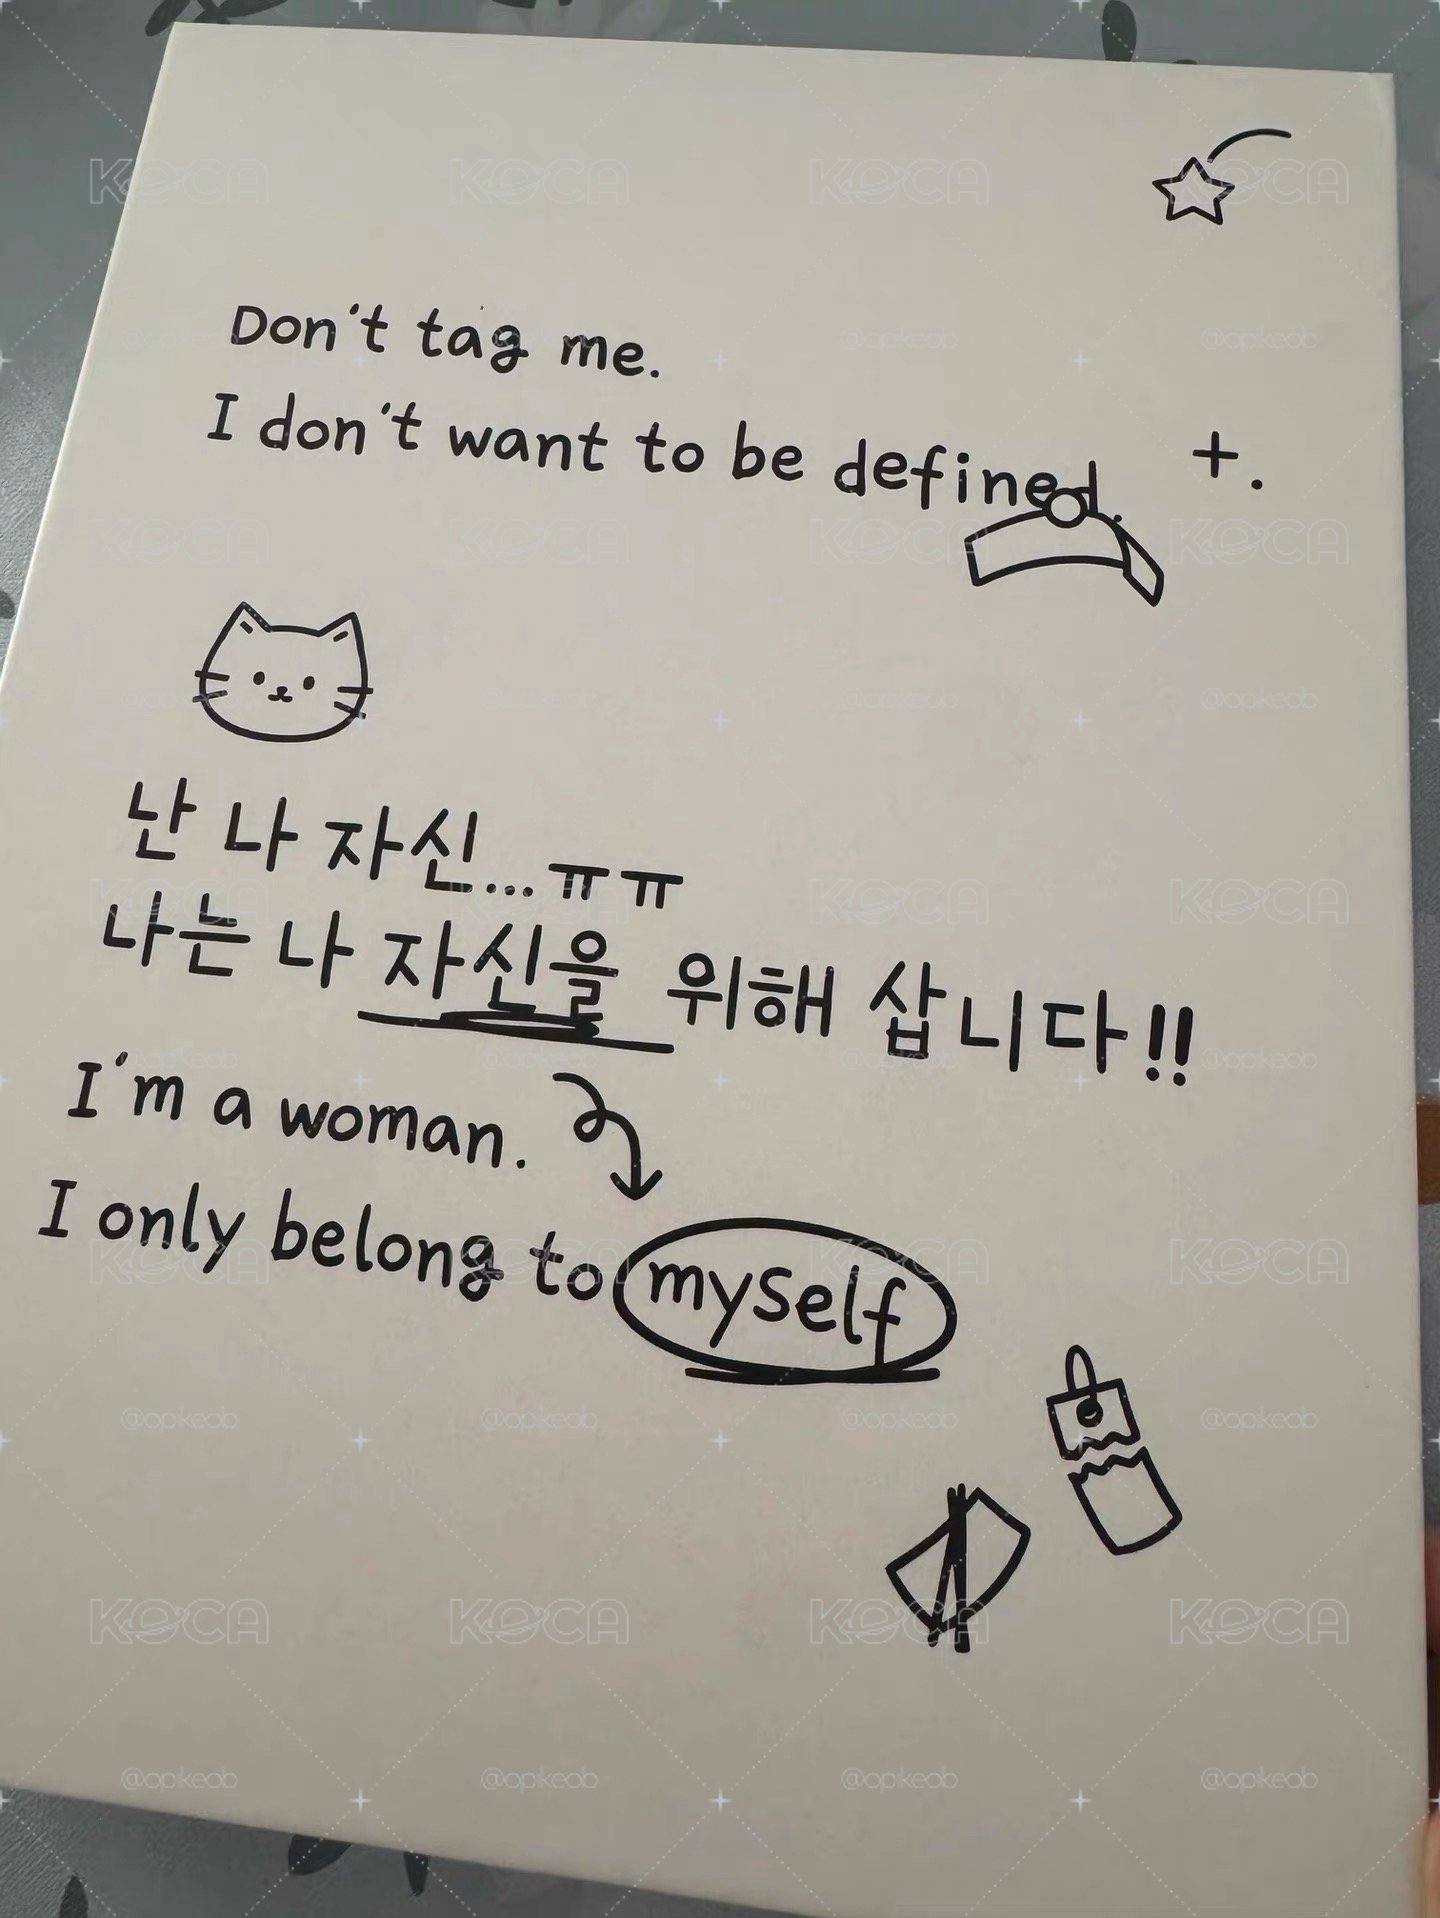 Don't tag me.
I don't want to be defined.
난 나 자신...ㅠㅠ
나는 나 자신을 위해 삽니다!!
I'm a woman.
I only belong to myself
KOCA
@opikeab